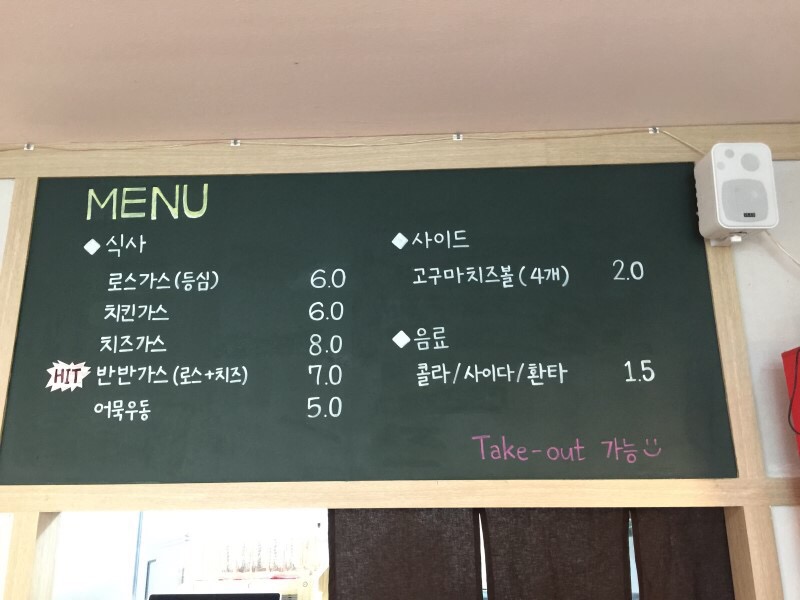 MENU
◆식사
로스가스(등심) 6.0
치킨가스 6.0
치즈가스 8.0
HIT 반반가스(로스+치즈) 7.0
어묵우동 5.0
◆사이드
고구마치즈볼(4개) 2.0
◆음료
콜라/사이다/환타 1.5
Take-out 가능